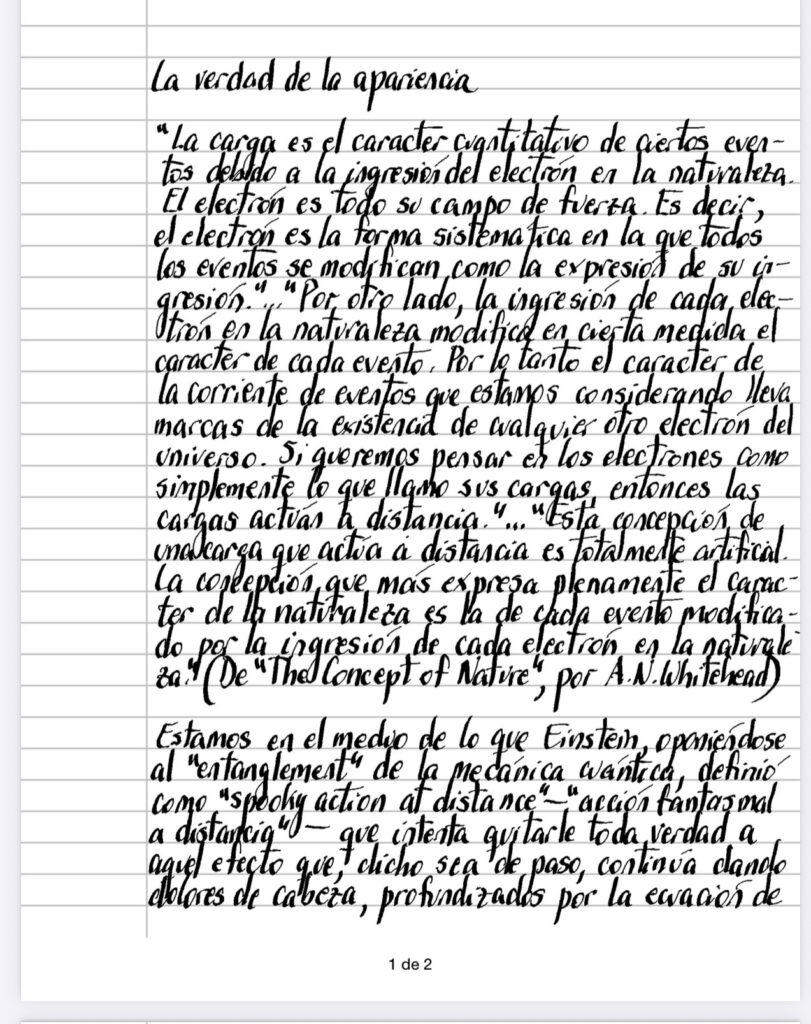 La verdad de la apariencia
"La carga es el caracter cuantitativo de ciertos even-
tos debido a la ingresión del electrón en la naturaleza.
El electrón es todo su campo de fuerza. Es decir,
el electrón es la forma sistematica en la que todos
los eventos se modifican como la expresión de su in-
gresión."..."Por otro lado, la ingresión de cada elec-
trón en la naturaleza modifica en cierta medida el
caracter de cada evento. Por lo tanto el caracter de
la corriente de eventos que estamos considerando lleva
marcas de la existencia de cualquier otro electrón del
universo. Si queremos pensar en los electrones como
simplemente lo que llamo sus cargas, entonces las
cargas actúan a distancia."..."Esta concepción de
una carga que actúa a distancia es totalmente artifical.
La concepción que más expresa plenamente el carac-
ter de la naturaleza es la de cada evento modifica-
do por la ingresión de cada electrón en la naturale
za." (De "The Concept of Nature", por A.N.Whitehead)
Estamos en el medio de lo que Einstein, oponiéndose
al "entanglement" de la mecánica cuántica, definió
como "spooky action at distance" — "acción fantasmal
a distancia" — que intenta quitarle toda verdad a
aquel efecto que, dicho sea de paso, continúa dando
dolores de cabeza, profundizados por la ecuación de
1 de 2